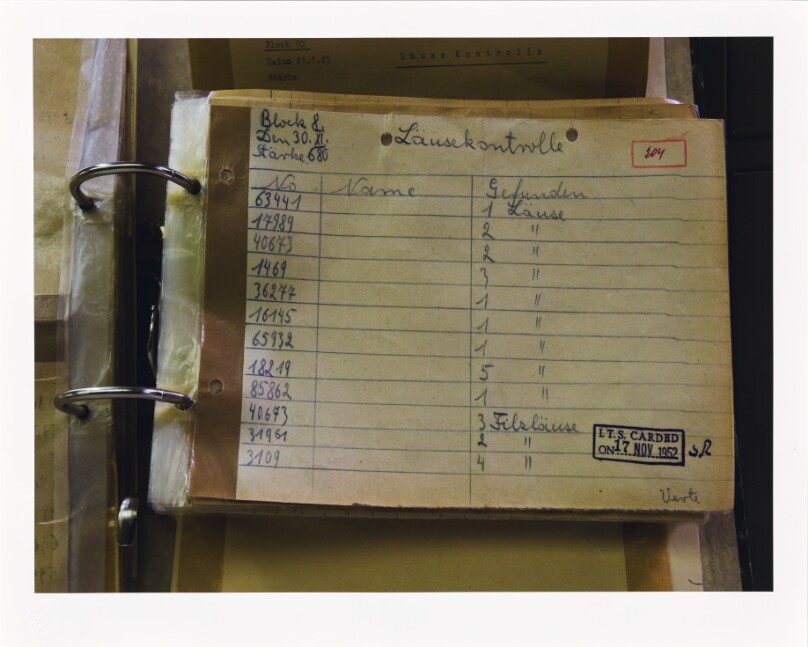 Block 10
Datum 31.1.45
Stärke
Läusekontrolle
Block 8.
Den 30. XI.
Stärke 680
Läusekontrolle
204
No. Name Gefunden
63441 1 Läuse
17989 2 "
40673 2 "
1469 3 "
36277 1 "
16145 1 "
65932 1 "
18219 5 "
85862 1 "
40673 3 Filzläuse
31961 2 "
3109 4 "
I.T.S. CARDED
ON 17 NOV. 1952
Verte